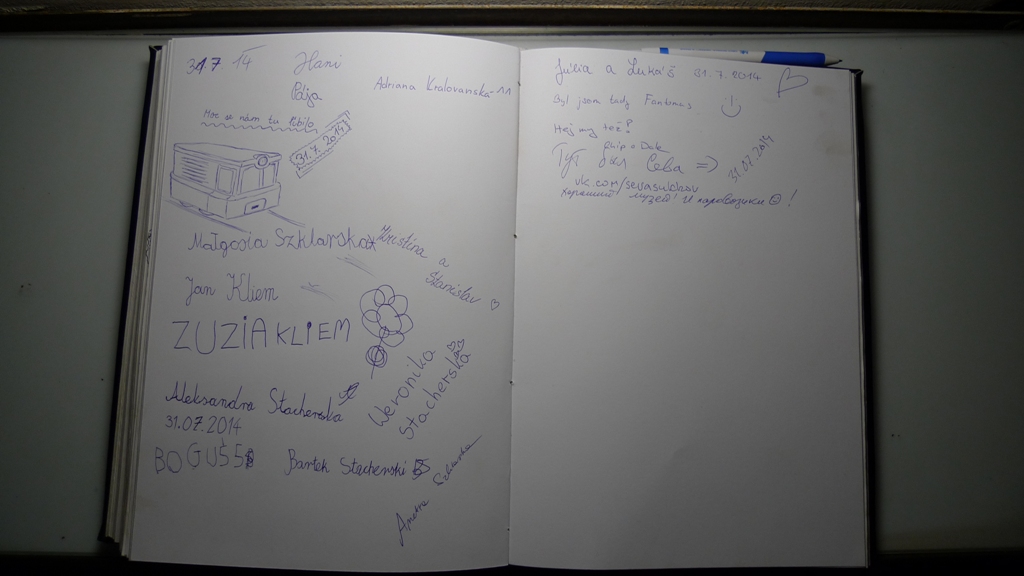 31.7 14
Hani
Pája
Adriana Kralovanská ^^
Moc se nám tu líbilo
31.7.2014
Małgosia Szklarska
Kristína a
Stanislav
Jan Kliem
ZUZIA KLIEM
Weronika
Stacherska
Aleksandra Stacherska
31.07.2014
BOGUŚ
Bartek Stacherski
Júlia a Lukáš 31.7.2014
Byl jsem tady Fantomas
Hej my též!
Chip a Dale
Тут был Сева =>
31.07.2014
vk.com/sevasulakov
Хороший музей! И паровозики ☺!